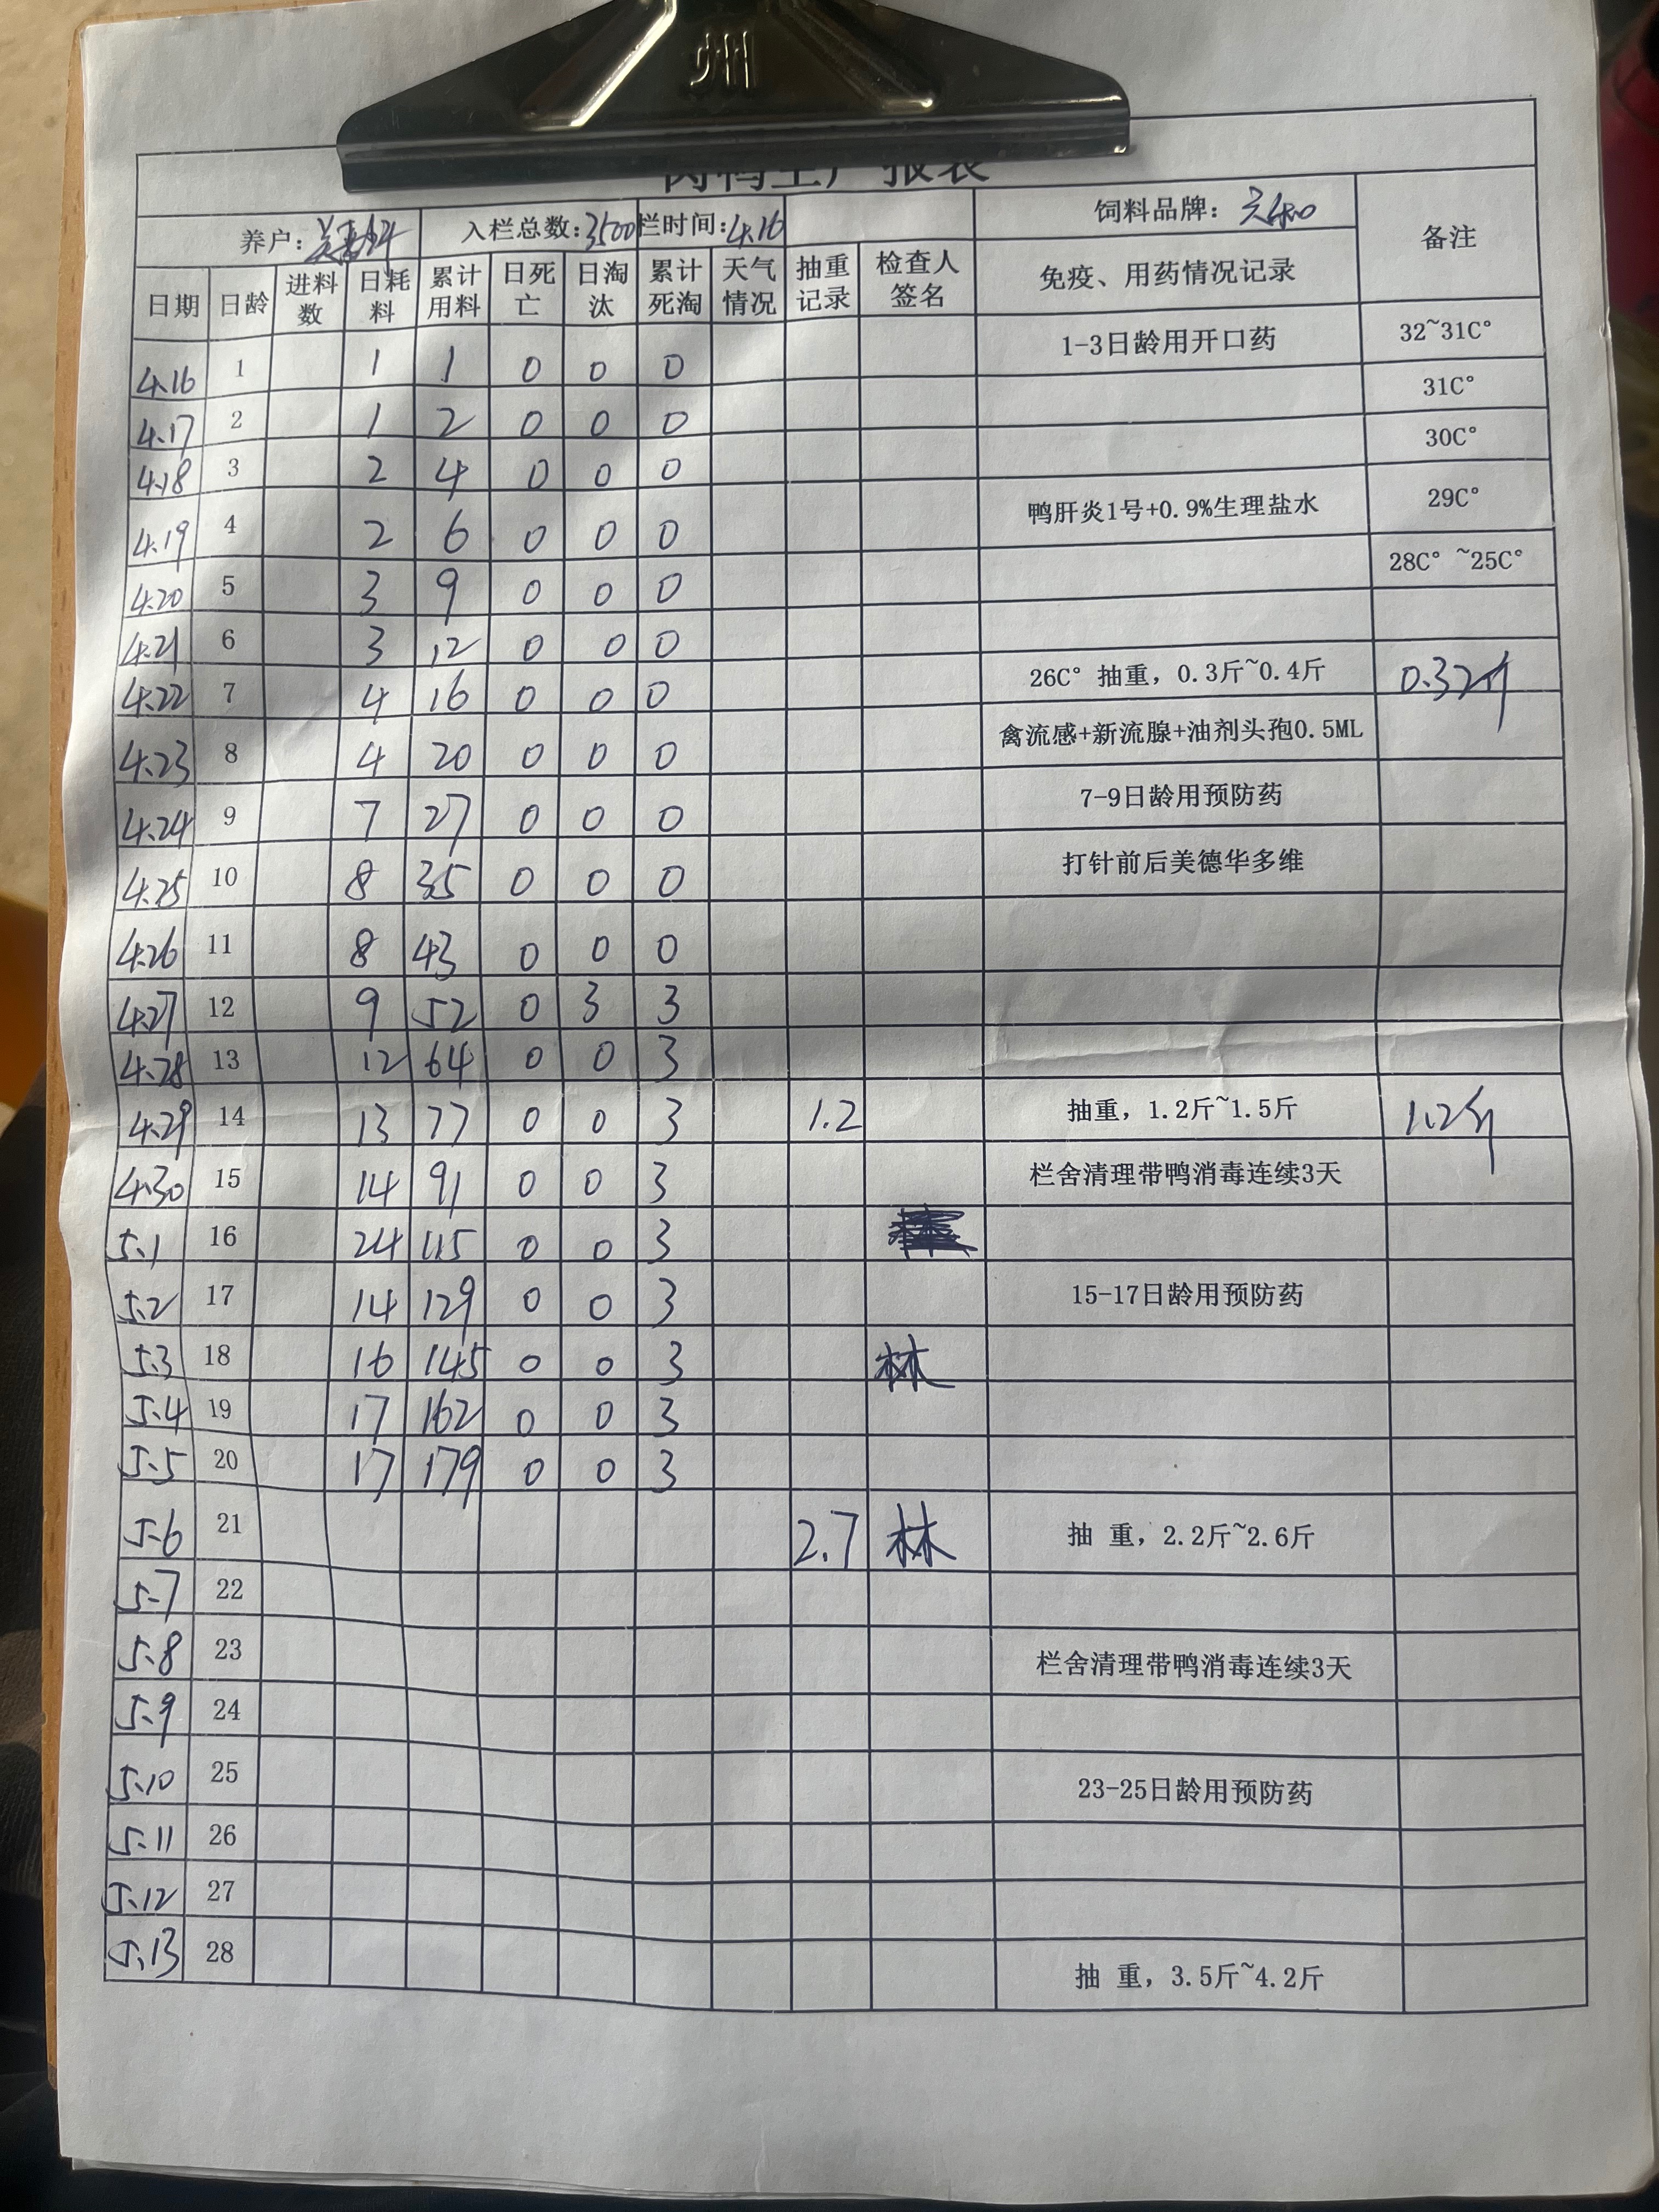 州
肉鸭生产报表
养户: 入栏总数:3500 栏时间:4.16 饲料品牌: 备注
日期 日龄 进料数 日耗料 累计用料 日死亡 日淘汰 累计死淘 天气情况 抽重记录 检查人签名 免疫、用药情况记录
4.16 1 1 1 0 0 0 1-3日龄用开口药 32~31C°
4.17 2 1 2 0 0 0 31C°
4.18 3 2 4 0 0 0 30C°
4.19 4 2 6 0 0 0 鸭肝炎1号+0.9%生理盐水 29C°
4.20 5 3 9 0 0 0 28C° ~25C°
4.21 6 3 12 0 0 0
4.22 7 4 16 0 0 0 26C° 抽重，0.3斤~0.4斤 0.32斤
4.23 8 4 20 0 0 0 禽流感+新流腺+油剂头孢0.5ML
4.24 9 7 27 0 0 0 7-9日龄用预防药
4.25 10 8 35 0 0 0 打针前后美德华多维
4.26 11 8 43 0 0 0
4.27 12 9 52 0 3 3
4.28 13 12 64 0 0 3
4.29 14 13 77 0 0 3 1.2 抽重，1.2斤~1.5斤 1.2斤
4.30 15 14 91 0 0 3 栏舍清理带鸭消毒连续3天
5.1 16 24 115 0 0 3
5.2 17 14 129 0 0 3 15-17日龄用预防药
5.3 18 16 145 0 0 3 林
5.4 19 17 162 0 0 3
5.5 20 17 179 0 0 3
5.6 21 2.7 林 抽 重，2.2斤~2.6斤
5.7 22
5.8 23 栏舍清理带鸭消毒连续3天
5.9 24
5.10 25 23-25日龄用预防药
5.11 26
5.12 27
5.13 28 抽 重，3.5斤~4.2斤